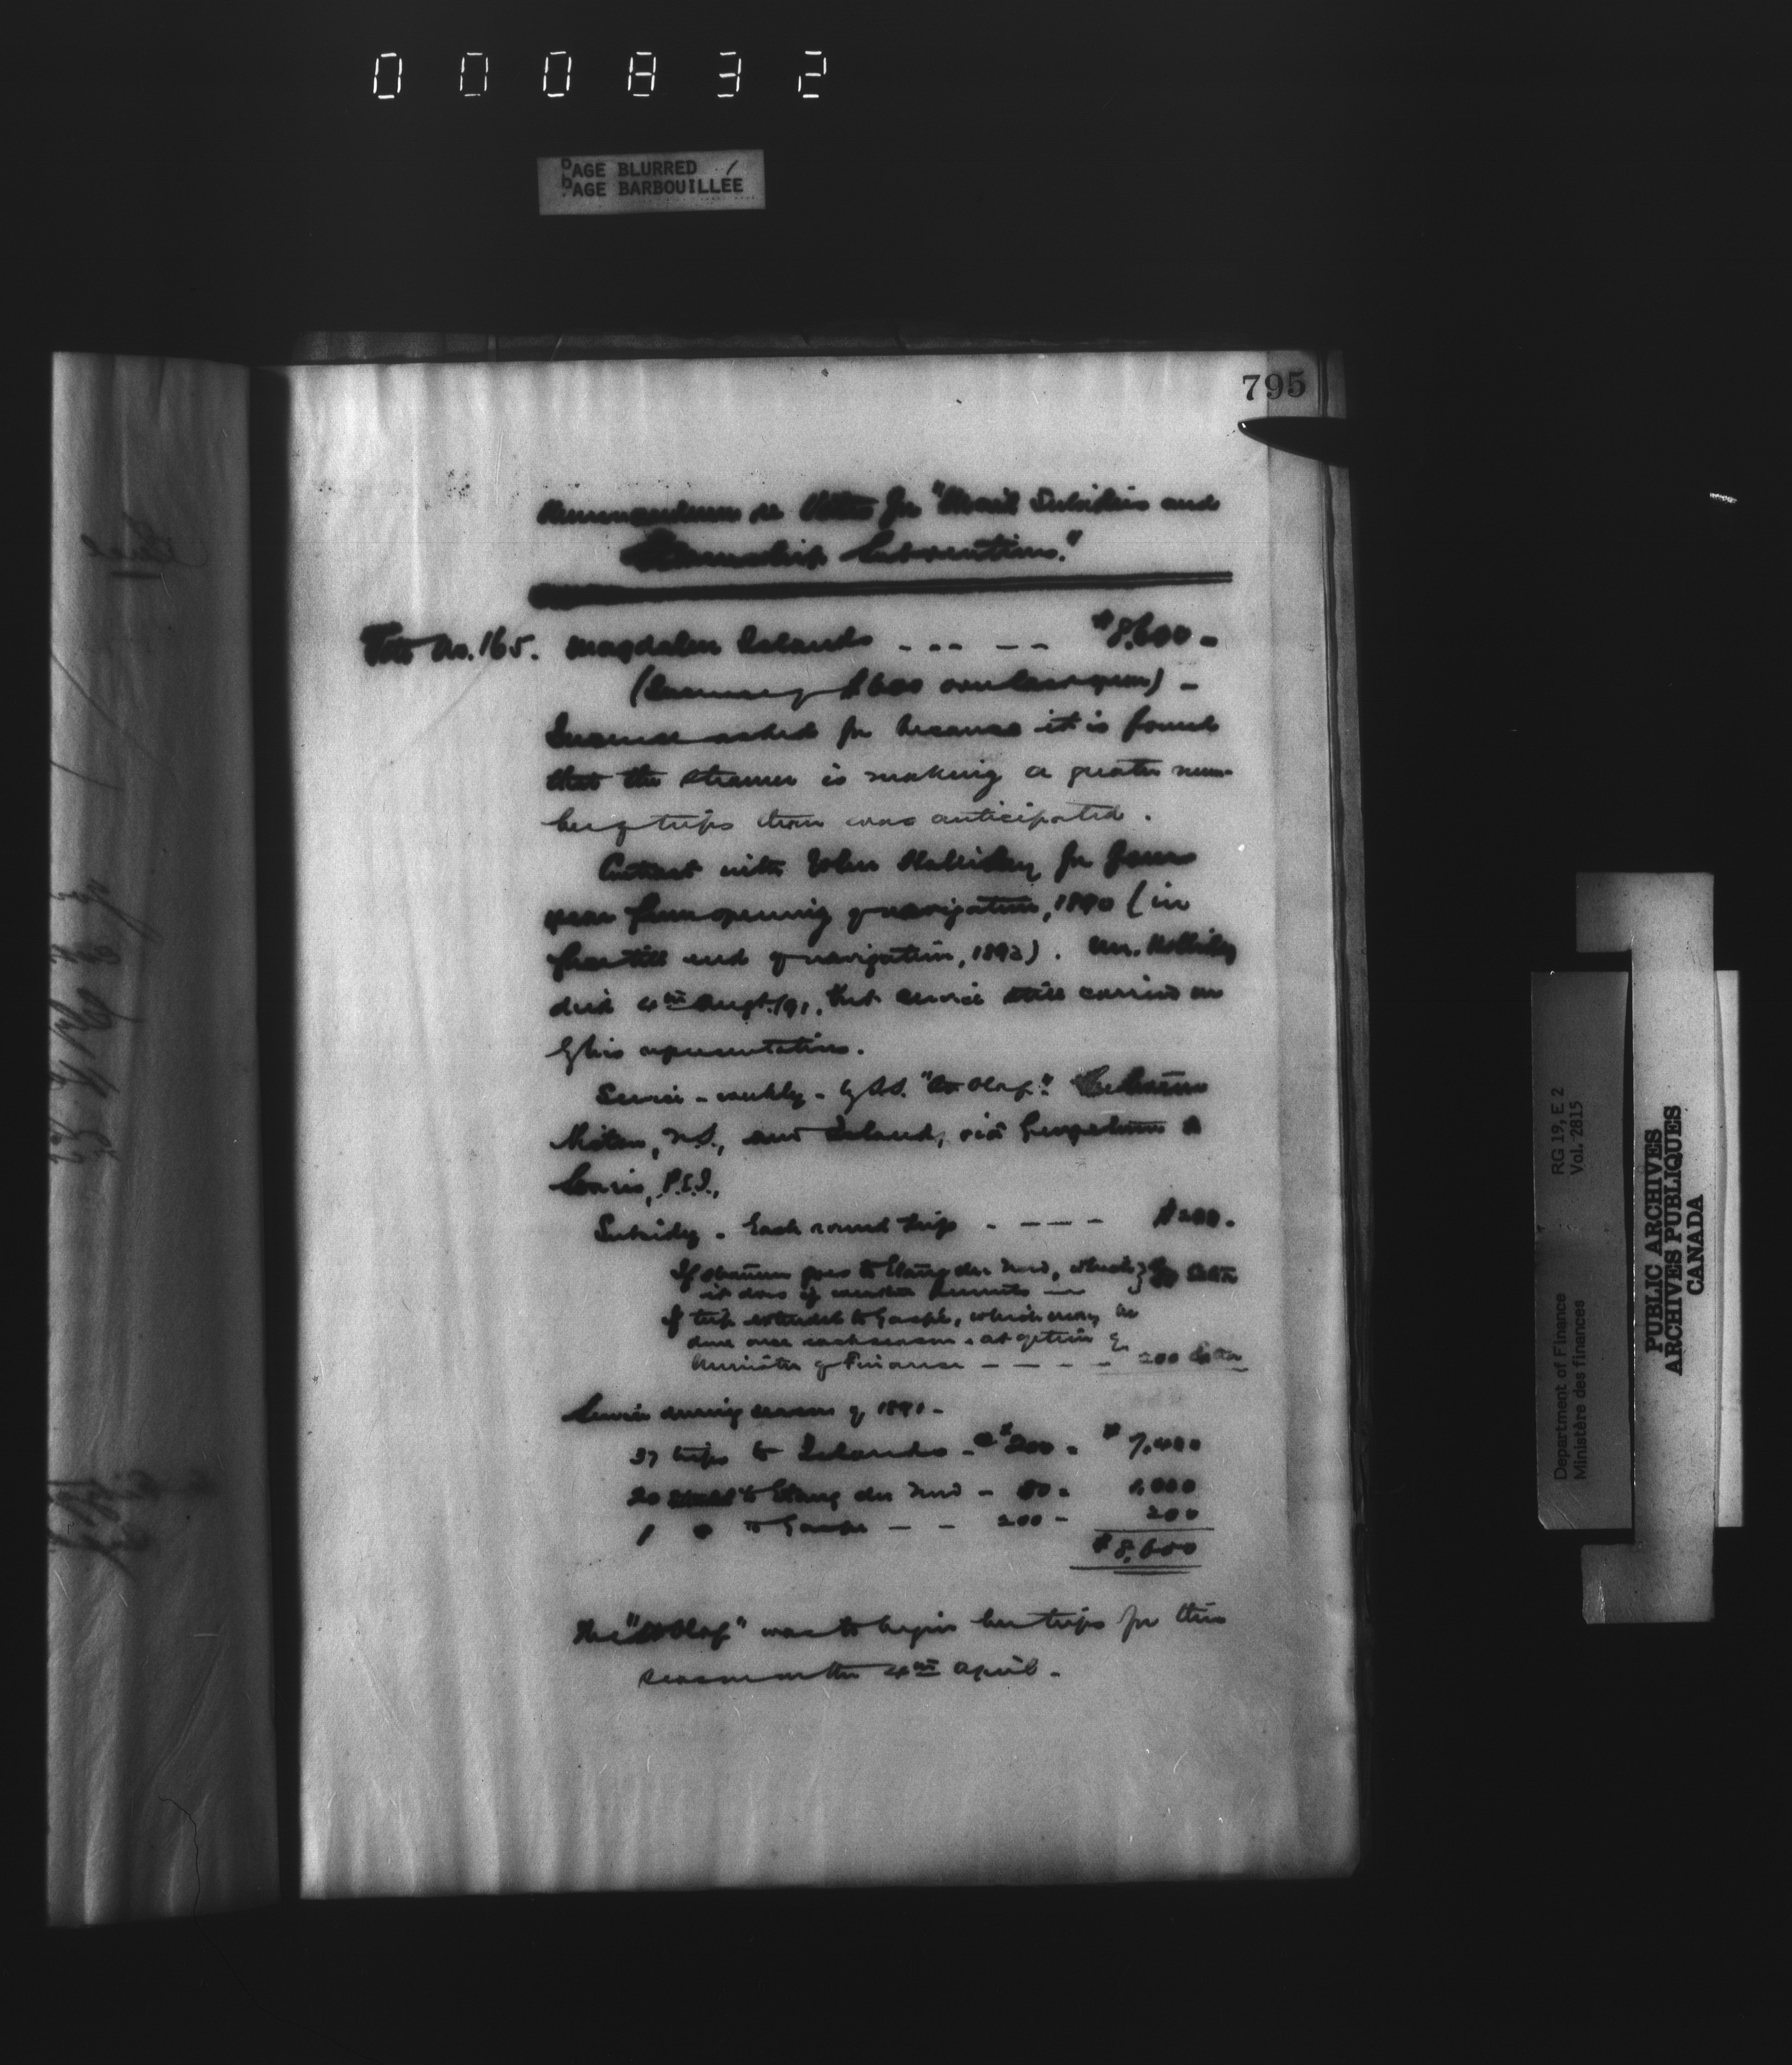 000832
PAGE BLURRED /
PAGE BARBOUILLÉE
795
Memorandum re Votes for "Mail Subsidies and
Steamship Subventions."
Vote No. 165. Magdalen Islands - - - - - $8,600 -
(Increase of $600 over last year) -
Increase asked for because it is found
that the steamer is making a greater num-
ber of trips than was anticipated.
Contract with John Halliday for four
years from opening of navigation, 1890 (in
force till end of navigation, 1893). Mr. Halliday
died 4th Augt./91, but service still carried on
by his representatives.
Service - weekly - by S.S. "St Olaf." Between
Pictou, N.S., and Islands, via Georgetown &
Souris, P.E.I.,
Subsidy - Each round trip - - - - - $200.
If steamer goes to Etang du Nord, which } 50 Extra
it does if weather permits -
If trip extended to Gaspé, which may be
done once each season - at option of
Minister of Finance - - - - - 200 Extra
Service during season of 1891 -
37 trips to Islands - @ $200 - $7,400
20 to Etang du Nord - 50 - 1,000
1 " to Gaspe - - 200 - 200
$8,600
The "St Olaf" was to begin her trips for this
season on the 4th April -
RG 19, E 2
Vol. 2815
Department of Finance
Ministère des finances
PUBLIC ARCHIVES
ARCHIVES PUBLIQUES
CANADA